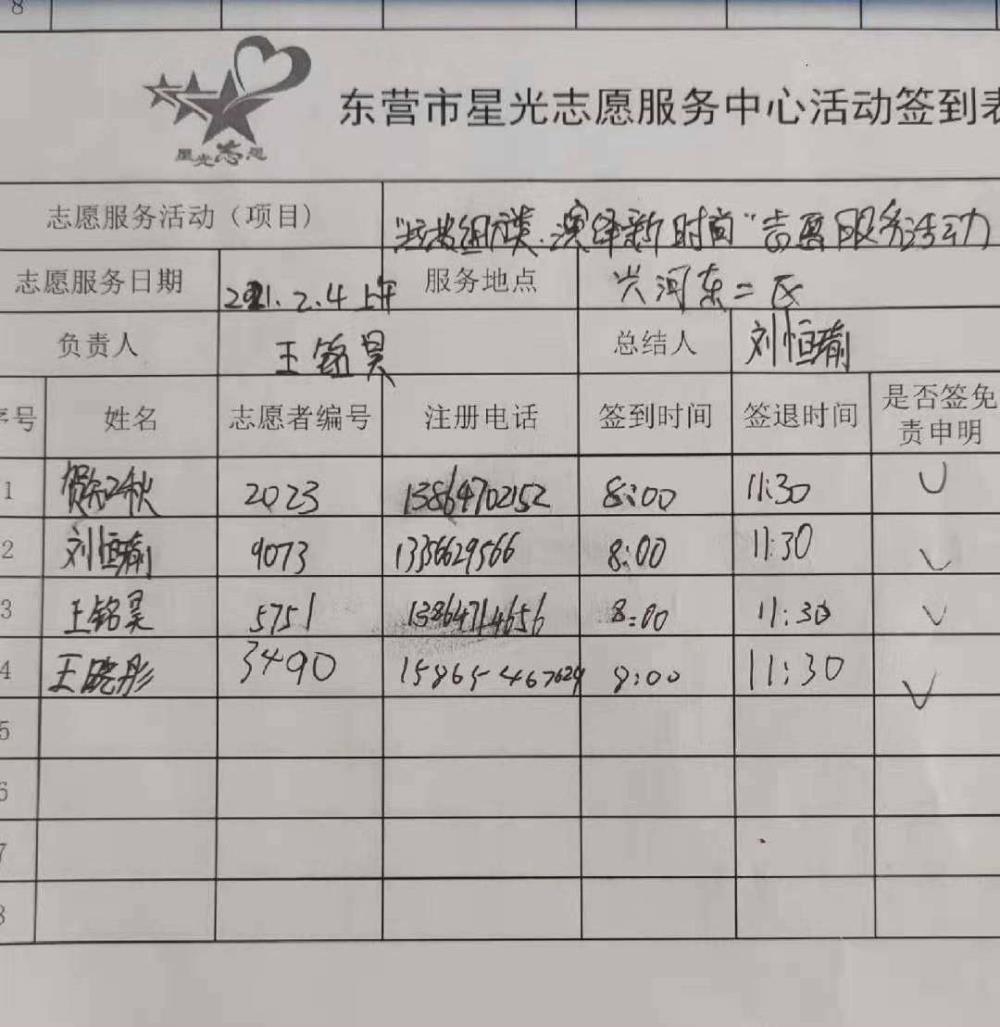 8
星光志愿
东营市星光志愿服务中心活动签到表
志愿服务活动（项目） 演绎新时尚"志愿服务活动
志愿服务日期 2021.2.4上午 服务地点 兴河东二区
负责人 王铭昊 总结人 刘恒瑜
序号 姓名 志愿者编号 注册电话 签到时间 签退时间 是否签免责申明
1 秋 2023 13864702152 8:00 11:30 ✓
2 刘恒瑜 9073 1356629566 8:00 11:30 ✓
3 王铭昊 5751 13864714656 8:00 11:30 ✓
4 王晓彤 3490 15865467629 8:00 11:30 ✓
5
6
7
8